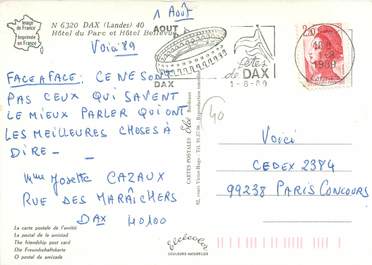 Image
de France
Imprimée
en France
N 6320 DAX (Landes) 40
Hôtel du Parc et Hôtel Bellevue
1 Août
Voici 89
AOUT
Fêtes
de DAX
1-8-89
2,20
1989
FACE A FACE : CE NE SONT
PAS CEUX QUI SAVENT
LE MIEUX PARLER QUI ONT
LES MEILLEURES CHOSES À
DIRE -
Mme Josette CAZAUX
RUE DES MARAÎCHERS
DAX 40100
40
VOICI
CEDEX 2384
99238 PARIS CONCOURS
CARTES POSTALES Elcé Bordeaux
La carte postale de l'amitié
La postal de la amistad
The friendship post card
Die Freundschaftskarte
O postal da amizade
Elcécolor
COULEURS NATURELLES